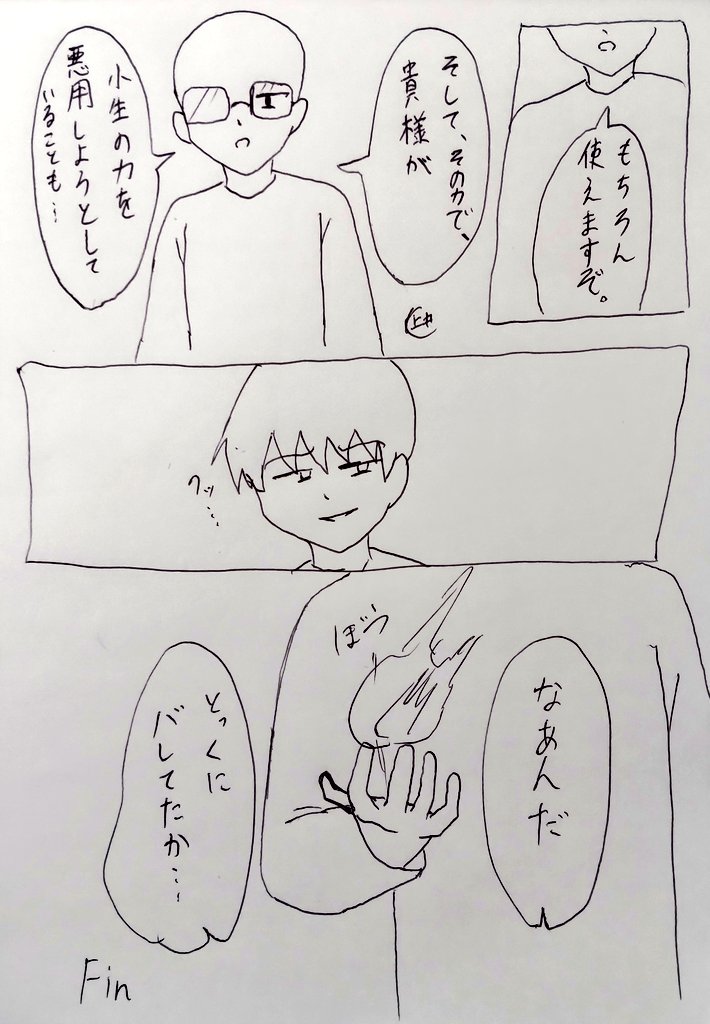 もちろん
使えますぞ。
そして、その力で、
貴様が
小生の力を
悪用しようとして
いることも…
上中
クッ…
ぼうっ
なあんだ
とっくに
バレてたか…
Fin